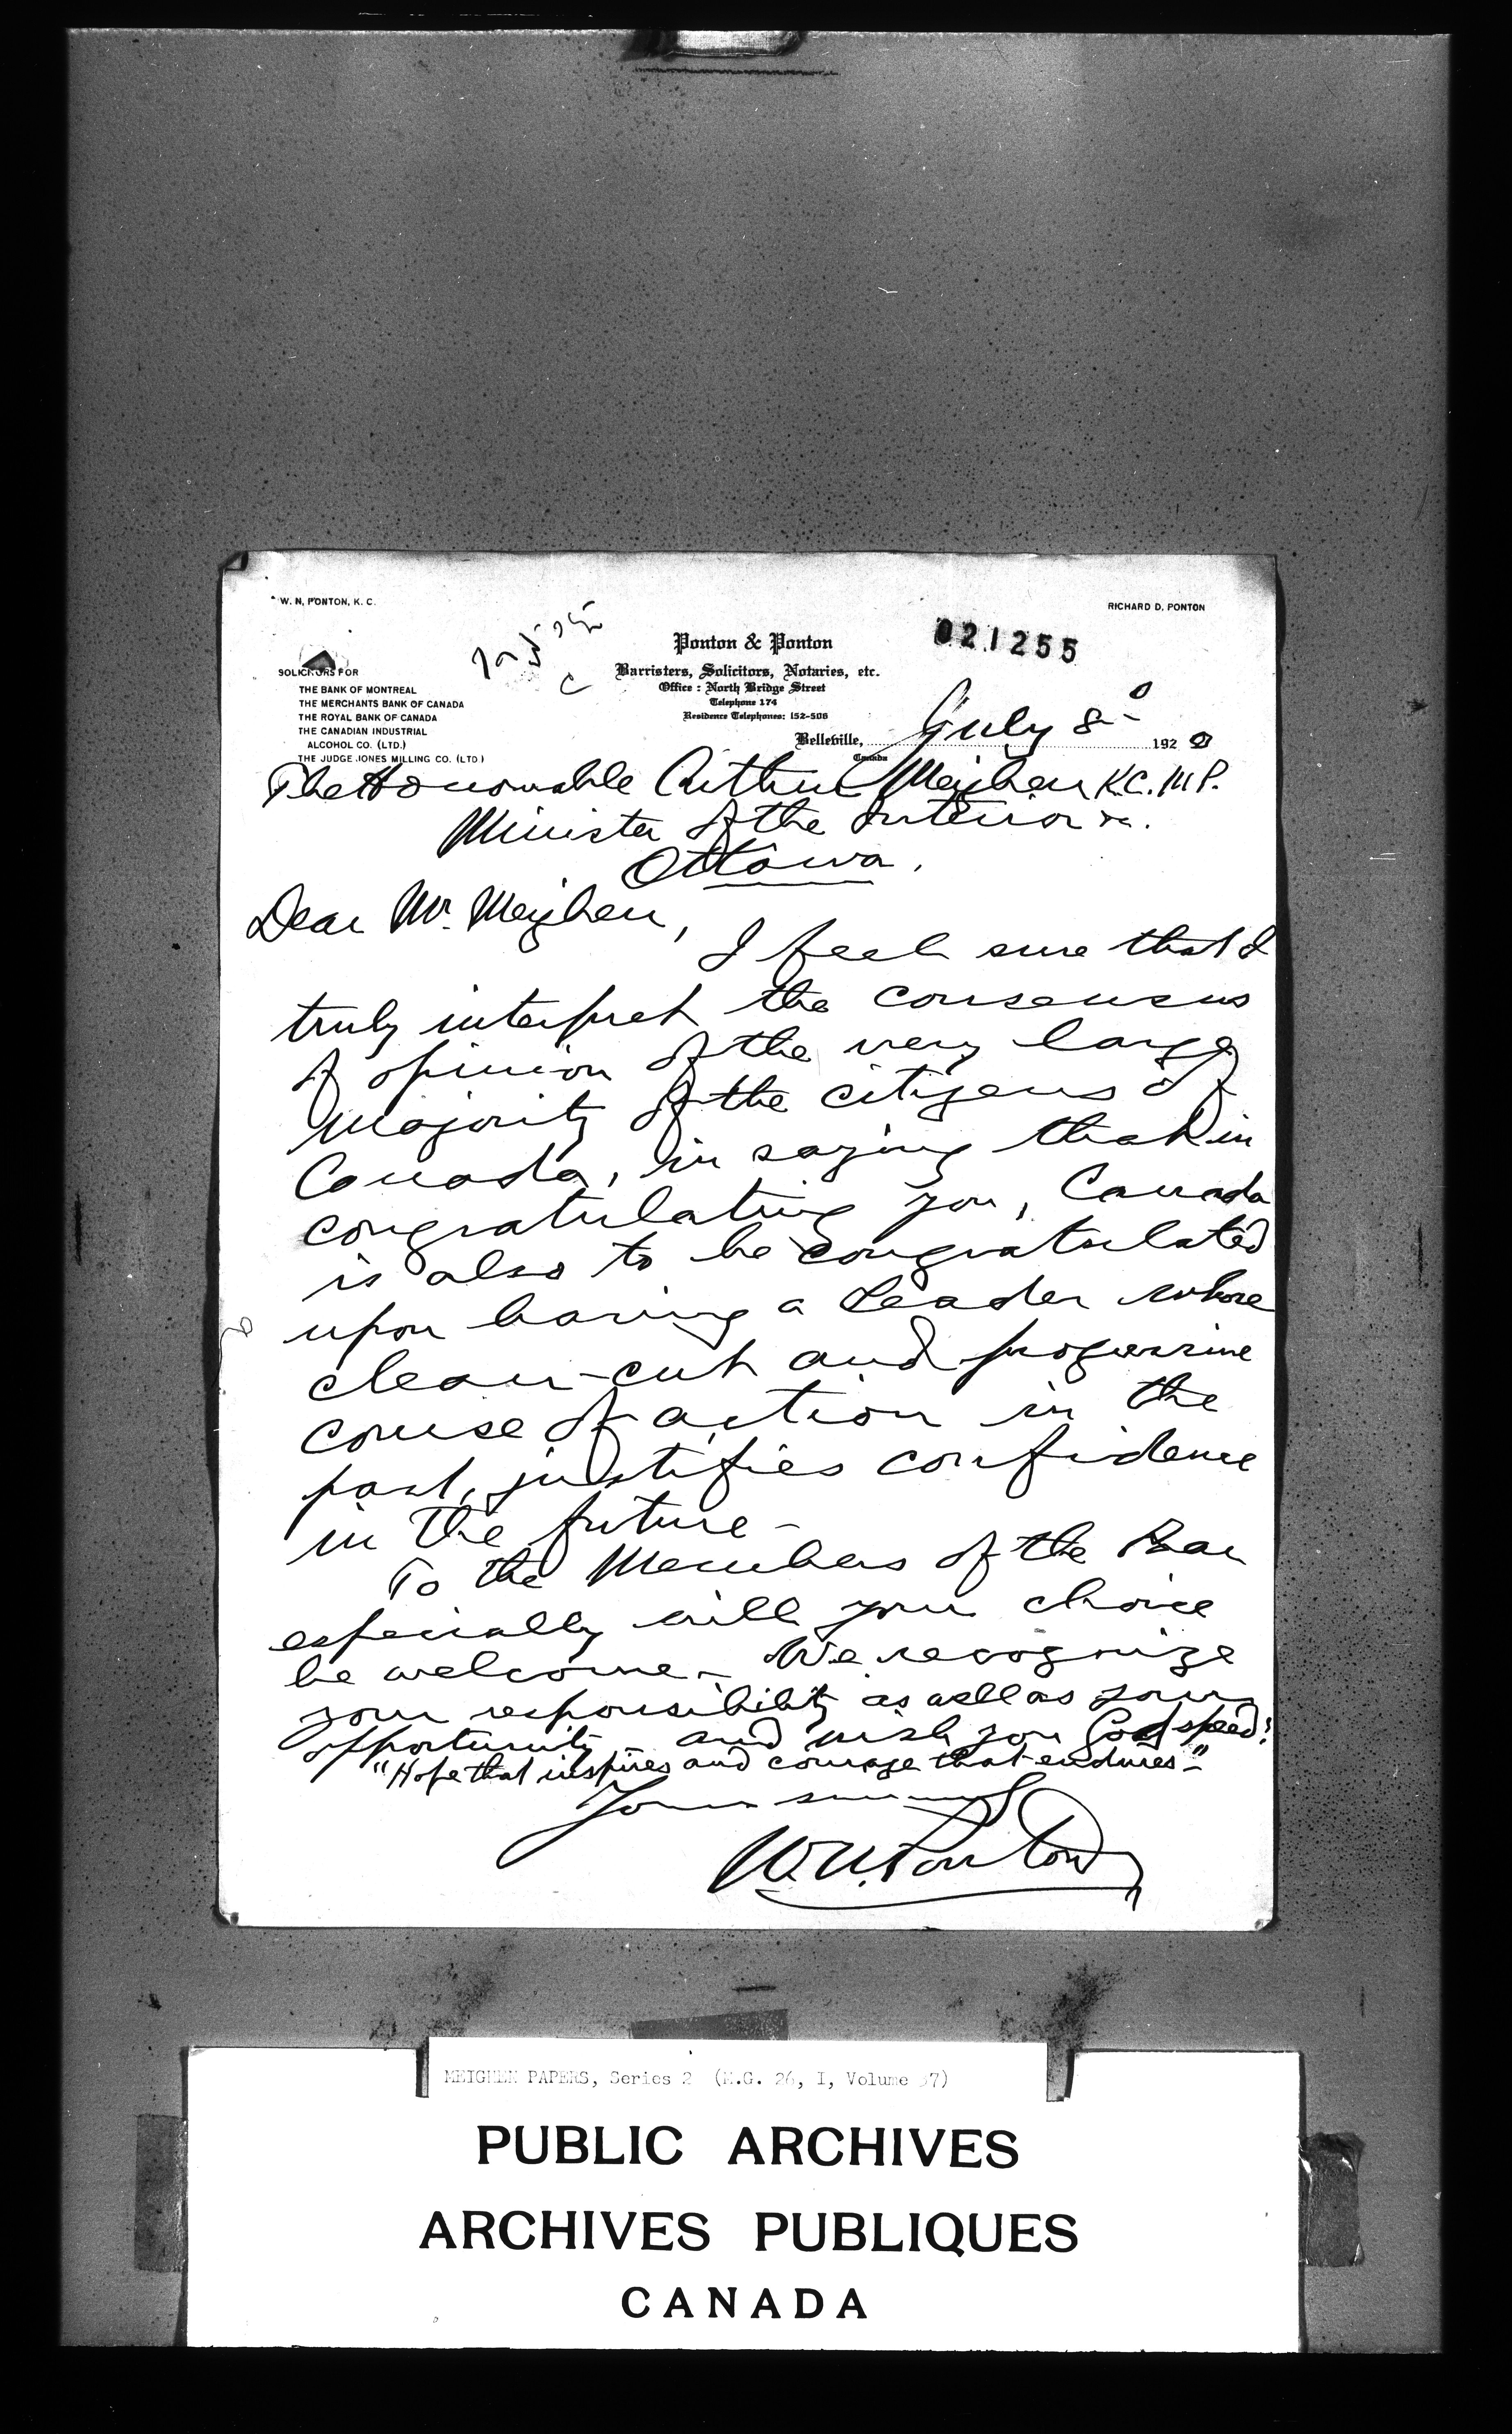 W. N. PONTON, K. C.
RICHARD D. PONTON
021255
Ponton & Ponton
Barristers, Solicitors, Notaries, etc.
Office : North Bridge Street
Telephone 174
Residence Telephones: 152-506
SOLICITORS FOR
THE BANK OF MONTREAL
THE MERCHANTS BANK OF CANADA
THE ROYAL BANK OF CANADA
THE CANADIAN INDUSTRIAL
ALCOHOL CO. (LTD.)
THE JUDGE JONES MILLING CO. (LTD)
Belleville, July 8 1920
Canada
The Honourable Arthur Meighen K.C. M.P.
Minister of the Interior &c.
Ottawa.
Dear Mr. Meighen,
I feel sure that I
truly interpret the consensus
of opinion of the very large
majority of the citizens of
Canada, in saying that in
congratulating you, Canada
is also to be congratulated
upon having a Leader whose
clean-cut and progressive
course of action in the
past, justifies confidence
in the future -
To the Members of the Bar
especially will your choice
be welcome - We recognize
your responsibility as well as your
opportunity - and wish you God speed!
"Hope that inspires and courage that endures -"
Yours sincerely
W. N. Ponton
MEIGHEN PAPERS, Series 2 (M.G. 26, I, Volume 37)
PUBLIC ARCHIVES
ARCHIVES PUBLIQUES
CANADA